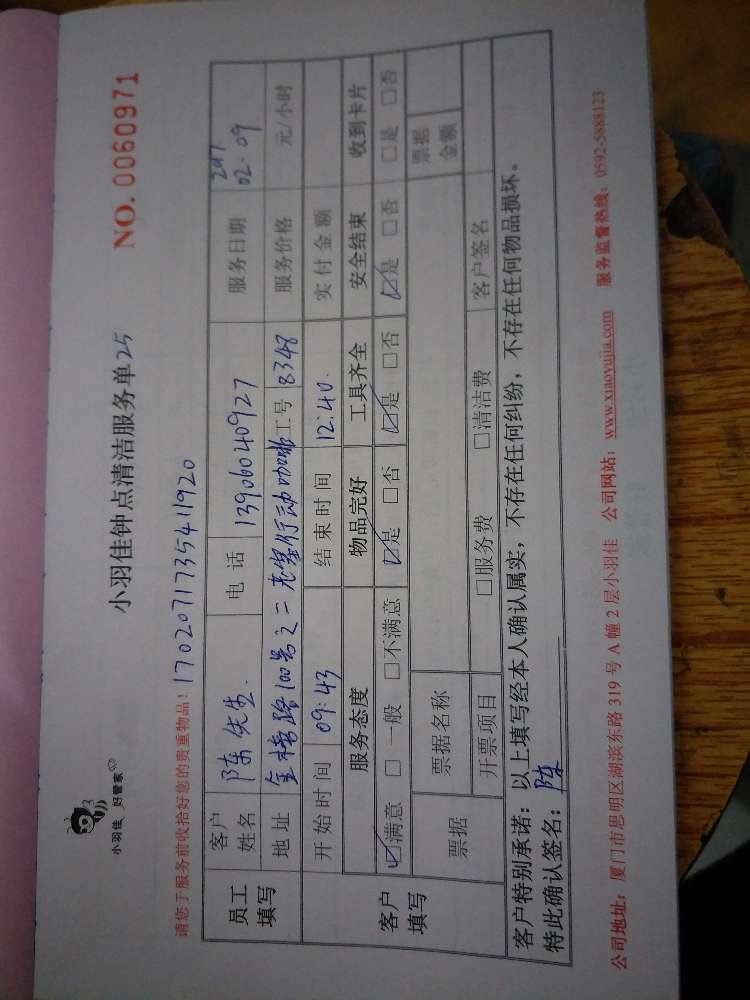 小羽佳 好管家
小羽佳钟点清洁服务单 25
NO. 0060971
请您于服务前收拾好您的贵重物品! 1702071735411920
员工填写 客户姓名 陈先生 电话 13906040927 服务日期 2017 02-09
地址 金榜路100号之二 行动咖啡 工号 8348 服务价格 元/小时
客户填写 开始时间 09:43 结束时间 12.40. 实付金额
服务态度 物品完好 工具齐全 安全结束 收到卡片
☑满意 □一般 □不满意 ☑是 □否 ☑是 □否 ☑是 □否 □是 □否
票据 票据名称 票据金额
开票项目 □服务费 □清洁费 客户签名
客户特别承诺: 以上填写经本人确认属实, 不存在任何纠纷, 不存在任何物品损坏.
特此确认签名: 陈
公司地址: 厦门市思明区湖滨东路 319 号 A 幢 2 层小羽佳 公司网站: www.xiaoyujia.com 服务监督热线: 0592-5888123